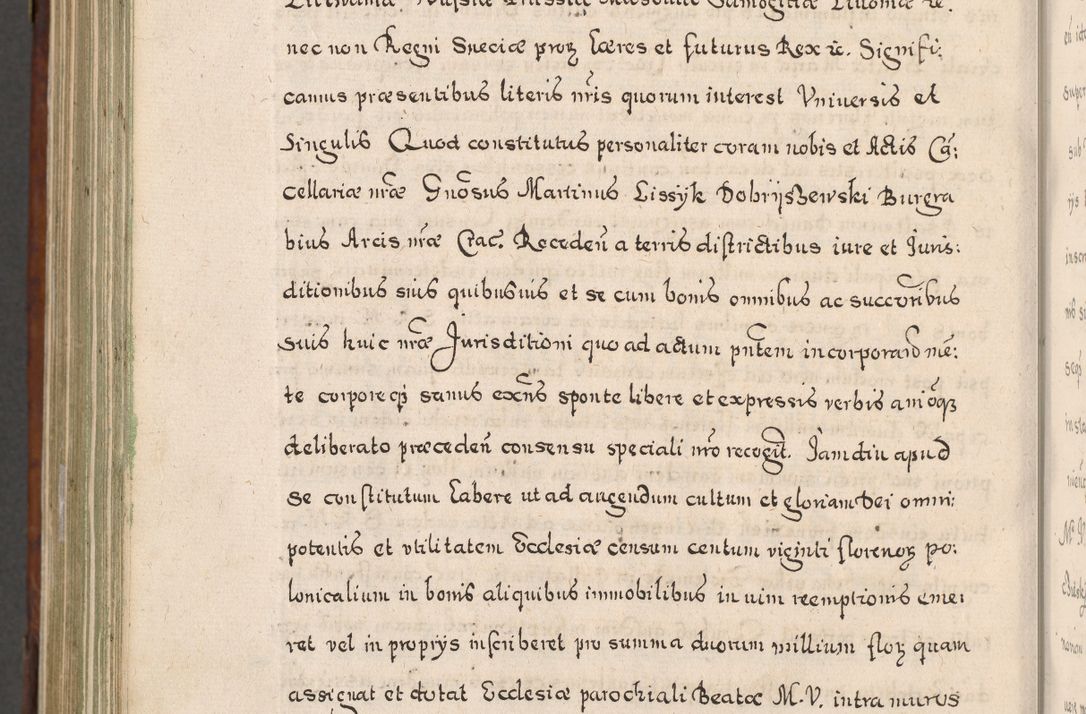 Lithvaniæ Russiæ Prussiæ Masoviæ Samogitiæ Livoniæ &c.
nec non Regni Sueciæ proz hæres et futurus Rex &c. Signifi:
camus præsentibus literis nr̃is quorum interest Vniuersis et
Singulis Quod constitutus personaliter coram nobis et Actis Cã:
cellariæ nr̃æ Gnõsus Martinus Lissÿk Dobrÿszewski Burgra
bius Arcis nr̃æ Crac. Receden̄ a terris districtibus iure et Juris:
ditionibus suis quibusuis et se cum bonis omnibus ac succõribus
suis huic nr̃æ Jurisditioni quo ad actum pñtem incorporando mẽ:
te corporeqȝ sanus exñs sponte libere et expressis verbis animõqȝ
deliberato præceden̄ consensu speciali nr̃o recogit. Jam diu apud
se constitutum habere ut ad augendum cultum et gloriam Dei omni:
potentis et vtilitatem Ecclesiæ censum centum viginti florenoȝ po:
lonicalium in bonis aliquibus immobilibus in uim reemptionis eme:
ret vel in proprÿs inscriberet pro summa duorum millium floȝ quam
assignat et dotat Ecclesiæ parochiali Beatæ M.V. intra muros